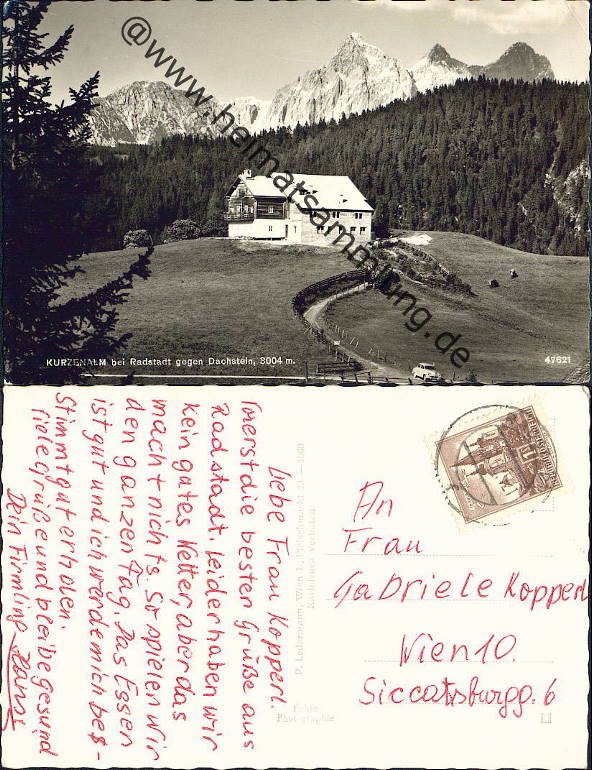 @www.heimatsammlung.de
KURZENALM bei Radstadt gegen Dachstein, 3004 m.
47621
Liebe Frau Kopperl.
Zuerst die besten Grüße aus
Radstadt, leider haben wir
Kein gutes Wetter, aber das
macht nichts. So spielen wir
den ganzen Tag. Das Essen
ist gut und ich werde mich be$-
Stimmt gut erholen.
Viele Grüße und bleibe gesund
Dein Firmling Hans
P. Ledermann, Wien I., Fleischmarkt 20 — 1960
Nachdruck verboten
Echte
Photographie
An
Frau
Gabriele Kopperl
Wien 10.
Siccatsburgg. 6